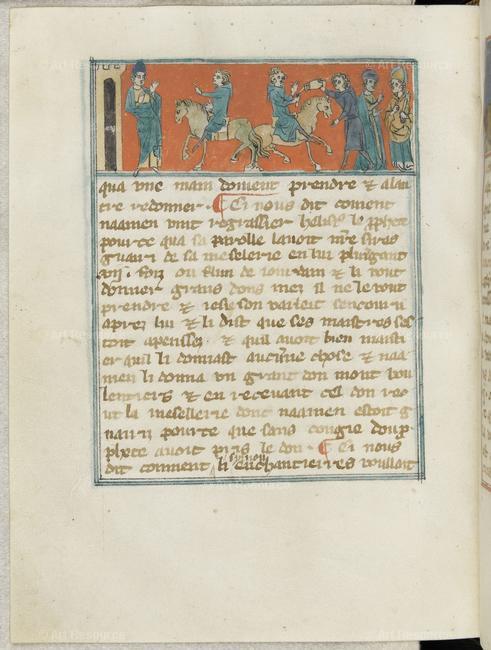 qua une main doivent prendre & alau
tre redonner. Ci nous dit coment
naamen vint regracier helise⁹ le pphete
pource qua sa parolle lavoit nr̃e sires
guari de sa meselerie en lui plungant
vij. foiz ou flun de iourdain & li vout
donner grans dons mez il ne le vout
prendre & iesi son varleit sen couru
aprez lui & li dist que ses maistres ses
toit apensez & quil avoit bien mesti
er quil li donnast aucune chose & naa
men li donna un grant don mout vou
lentiers & en recevant cel don rec
ut la mesellerie dont naamen estoit g
uari pource que sans congie dou p
phete avoit pris le don. Ci nous
dit comment symon
li enchantierres vouloit
© Art Resource